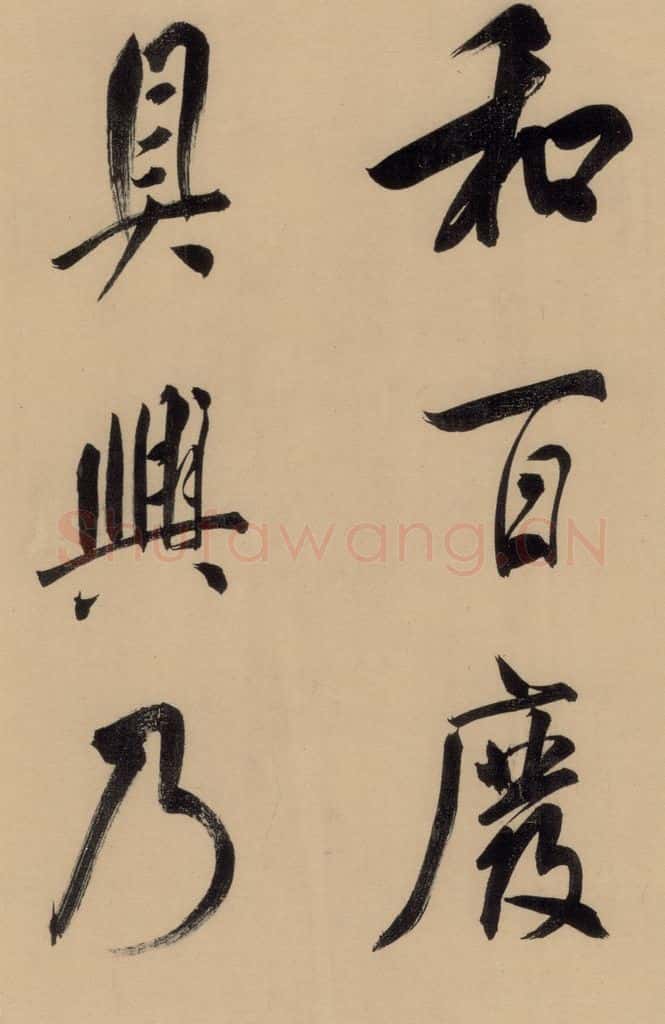 和百廢
具興乃
Shufawang.CN